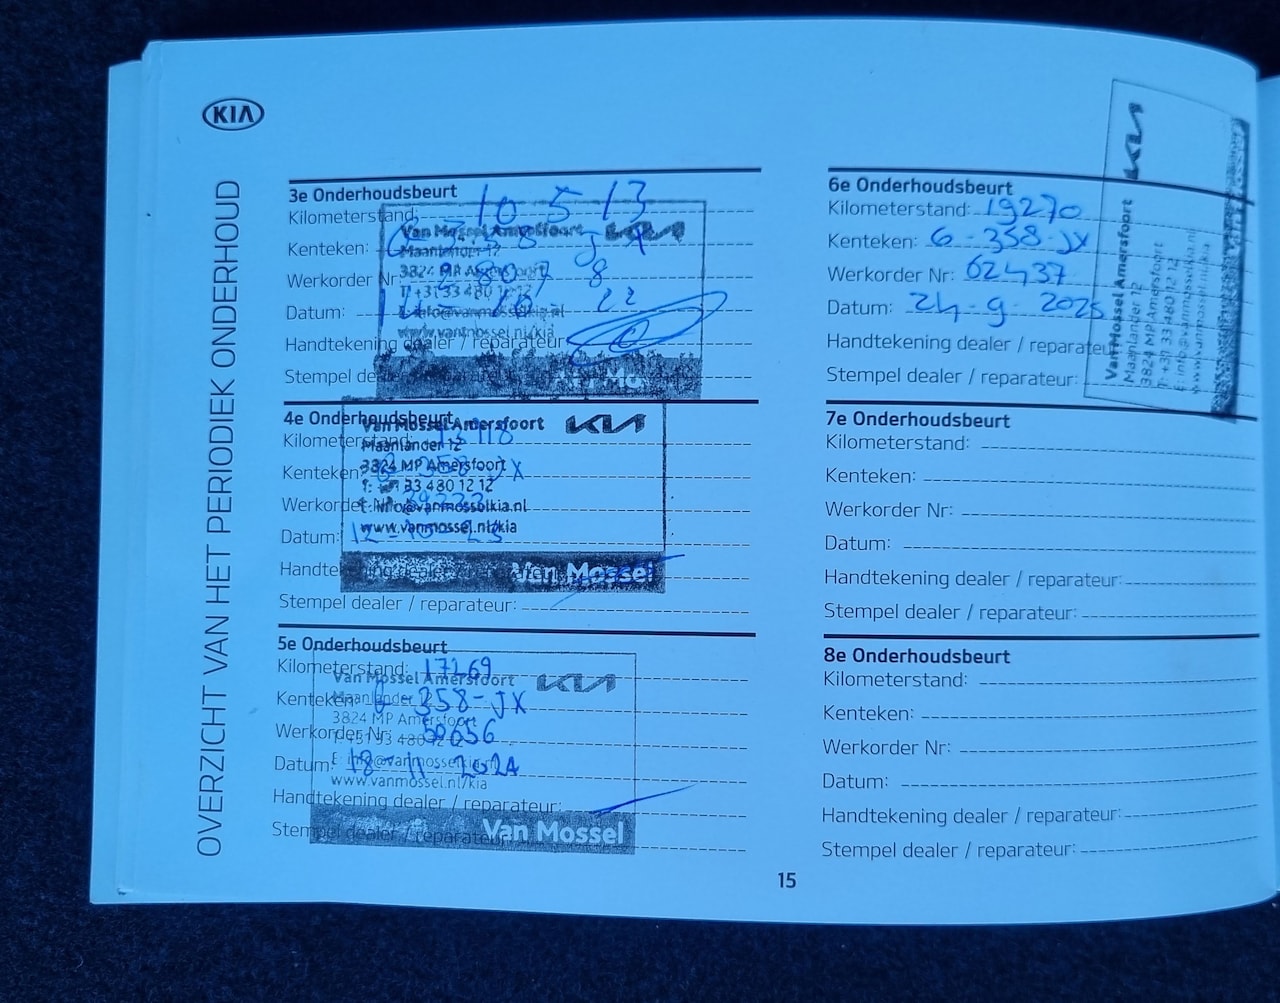 KIA
OVERZICHT VAN HET PERIODIEK ONDERHOUD
3e Onderhoudsbeurt
Kilometerstand: 10513
Kenteken:
Werkorder Nr:
Datum: 22
Handtekening dealer / reparateur
Stempel dealer / reparateur
Van Mossel Amersfoort KIA
Maanlander 12
3824 MP Amersfoort
T: +31 33 480 12 12
E: info@vanmosselkia.nl
www.vanmossel.nl/kia
4e Onderhoudsbeurt
Kilometerstand:
Kenteken: 358-JX
Werkorder Nr:
Datum: 12-10-23
Handtekening dealer
Stempel dealer / reparateur:
Van Mossel Amersfoort KIA
Maanlander 12
3824 MP Amersfoort
T: +31 33 480 12 12
E: info@vanmosselkia.nl
www.vanmossel.nl/kia
Van Mossel
5e Onderhoudsbeurt
Kilometerstand: 17269
Kenteken: 6-358-JX
Werkorder Nr: 50656
Datum: 18-11-2024
Handtekening dealer / reparateur:
Stempel dealer / reparateur
Van Mossel Amersfoort KIA
Maanlander 12
3824 MP Amersfoort
T: +31 33 480 12 12
E: info@vanmosselkia.nl
www.vanmossel.nl/kia
Van Mossel
6e Onderhoudsbeurt
Kilometerstand: 19270
Kenteken: 6-358-JX
Werkorder Nr: 62437
Datum: 24-9-2025
Handtekening dealer / reparateur
Stempel dealer / reparateur:
KIA
Van Mossel Amersfoort
Maanlander 12
3824 MP Amersfoort
T: +31 33 480 12 12
E: info@vanmosselkia.nl
www.vanmossel.nl/kia
7e Onderhoudsbeurt
Kilometerstand:
Kenteken:
Werkorder Nr:
Datum:
Handtekening dealer / reparateur:
Stempel dealer / reparateur:
8e Onderhoudsbeurt
Kilometerstand:
Kenteken:
Werkorder Nr:
Datum:
Handtekening dealer / reparateur:
Stempel dealer / reparateur:
15